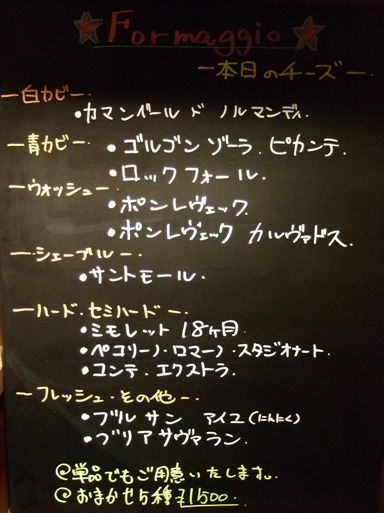 ★Formaggio★
ー本日のチーズー
ー白カビー・
・カマンベール ド ノルマンディ.
ー青カビー・ゴルゴンゾーラ.ピカンテ.
・ロックフォール.
ーウォッシュー・ポンレヴェック.
・ポンレヴェック カルヴァドス.
ーシェーブルー・
・サントモール.
ーハード・セミハードー.
・ミモレット 18ヶ月.
・ペコリーノ・ロマーノ・スタジオナート.
・コンテ.エクストラ.
ーフレッシュ・その他ー・
・ブルサン アイユ(にんにく)
・ブリアサヴァラン.
@単品でもご用意いたします。
@おまかせ5種¥1500.